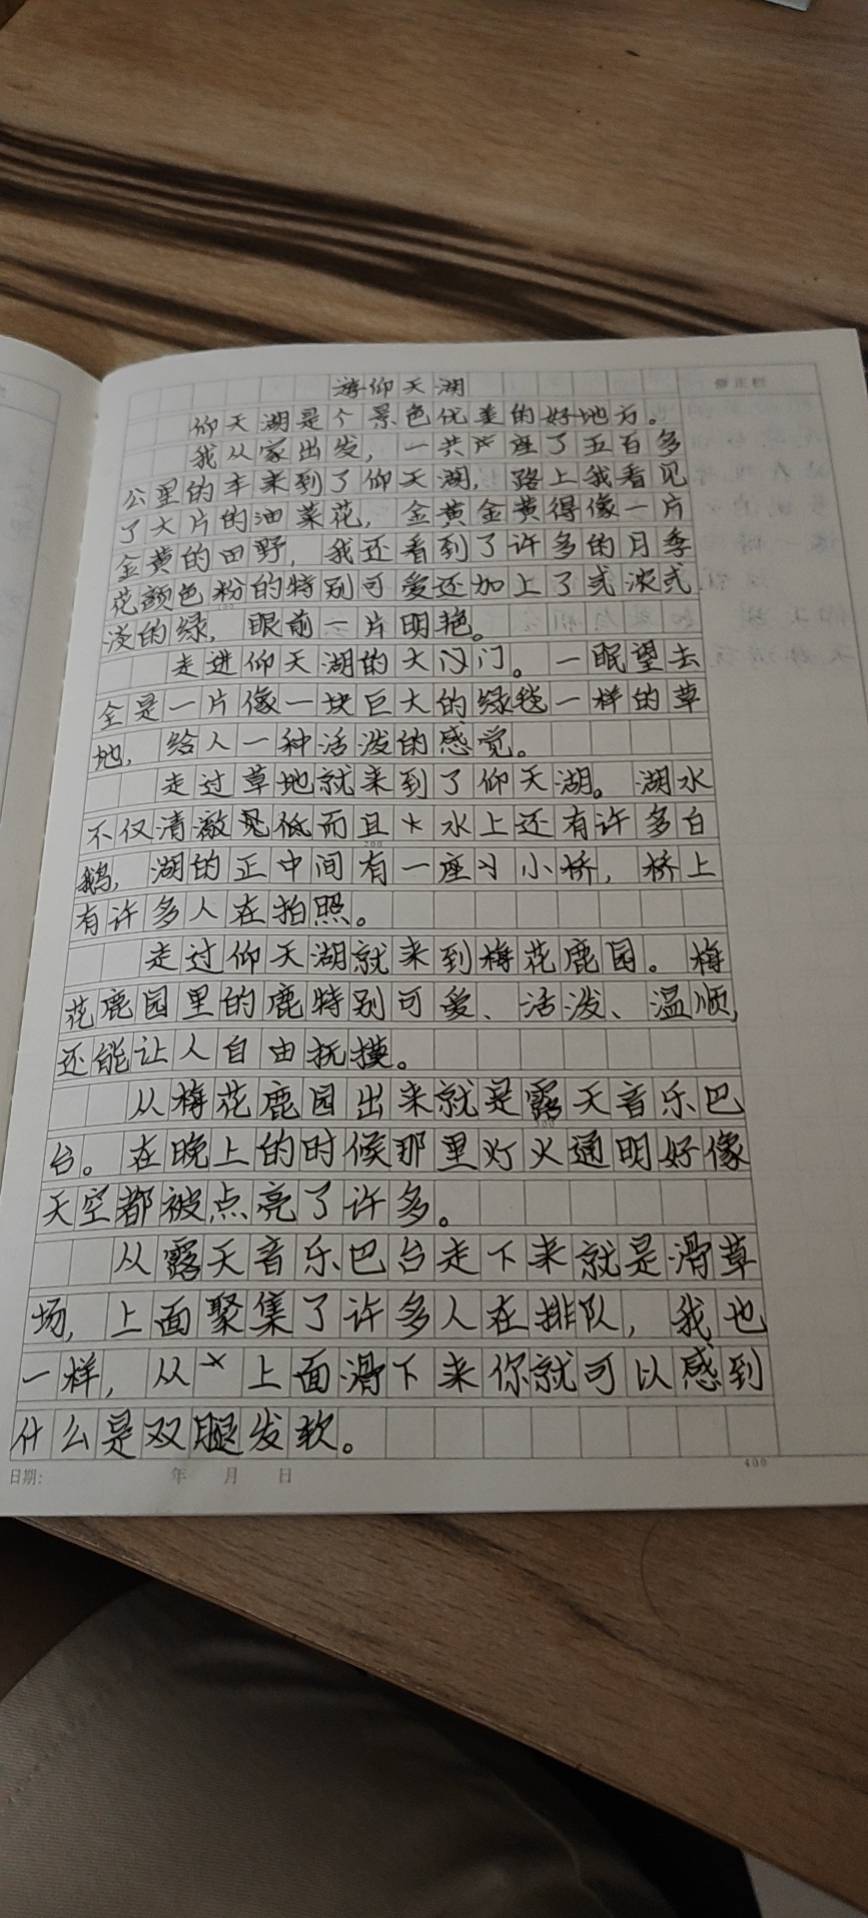 修正栏
游仰天湖
仰天湖是个景色优美的好地方。
我从家出发，一共座了五百多
公里的车来到了仰天湖，路上我看见
了大片的油菜花，金黄金黄得像一片
金黄的田野，我还看到了许多的月季
花颜色粉的特别可爱还加上了或浓或
浅的绿，眼前一片明艳。
走进仰天湖的大门。一眼望去
全是一片像一块巨大的绿毯一样的草
地，给人一种活泼的感觉。
走过草地就来到了仰天湖。湖水
不仅清澈见低而且水上还有许多白
鹅，湖的正中间有一座小桥，桥上
有许多人在拍照。
走过仰天湖就来到梅花鹿园。梅
花鹿园里的鹿特别可爱、活泼、温顺，
还能让人自由抚摸。
从梅花鹿园出来就是露天音乐巴
台。在晚上的时候那里灯火通明好像
天空都被点亮了许多。
从露天音乐巴台走下来就是滑草
场，上面聚集了许多人在排队，我也
一样，从上面滑下来你就可以感到
什么是双腿发软。
400
日期： 年 月 日